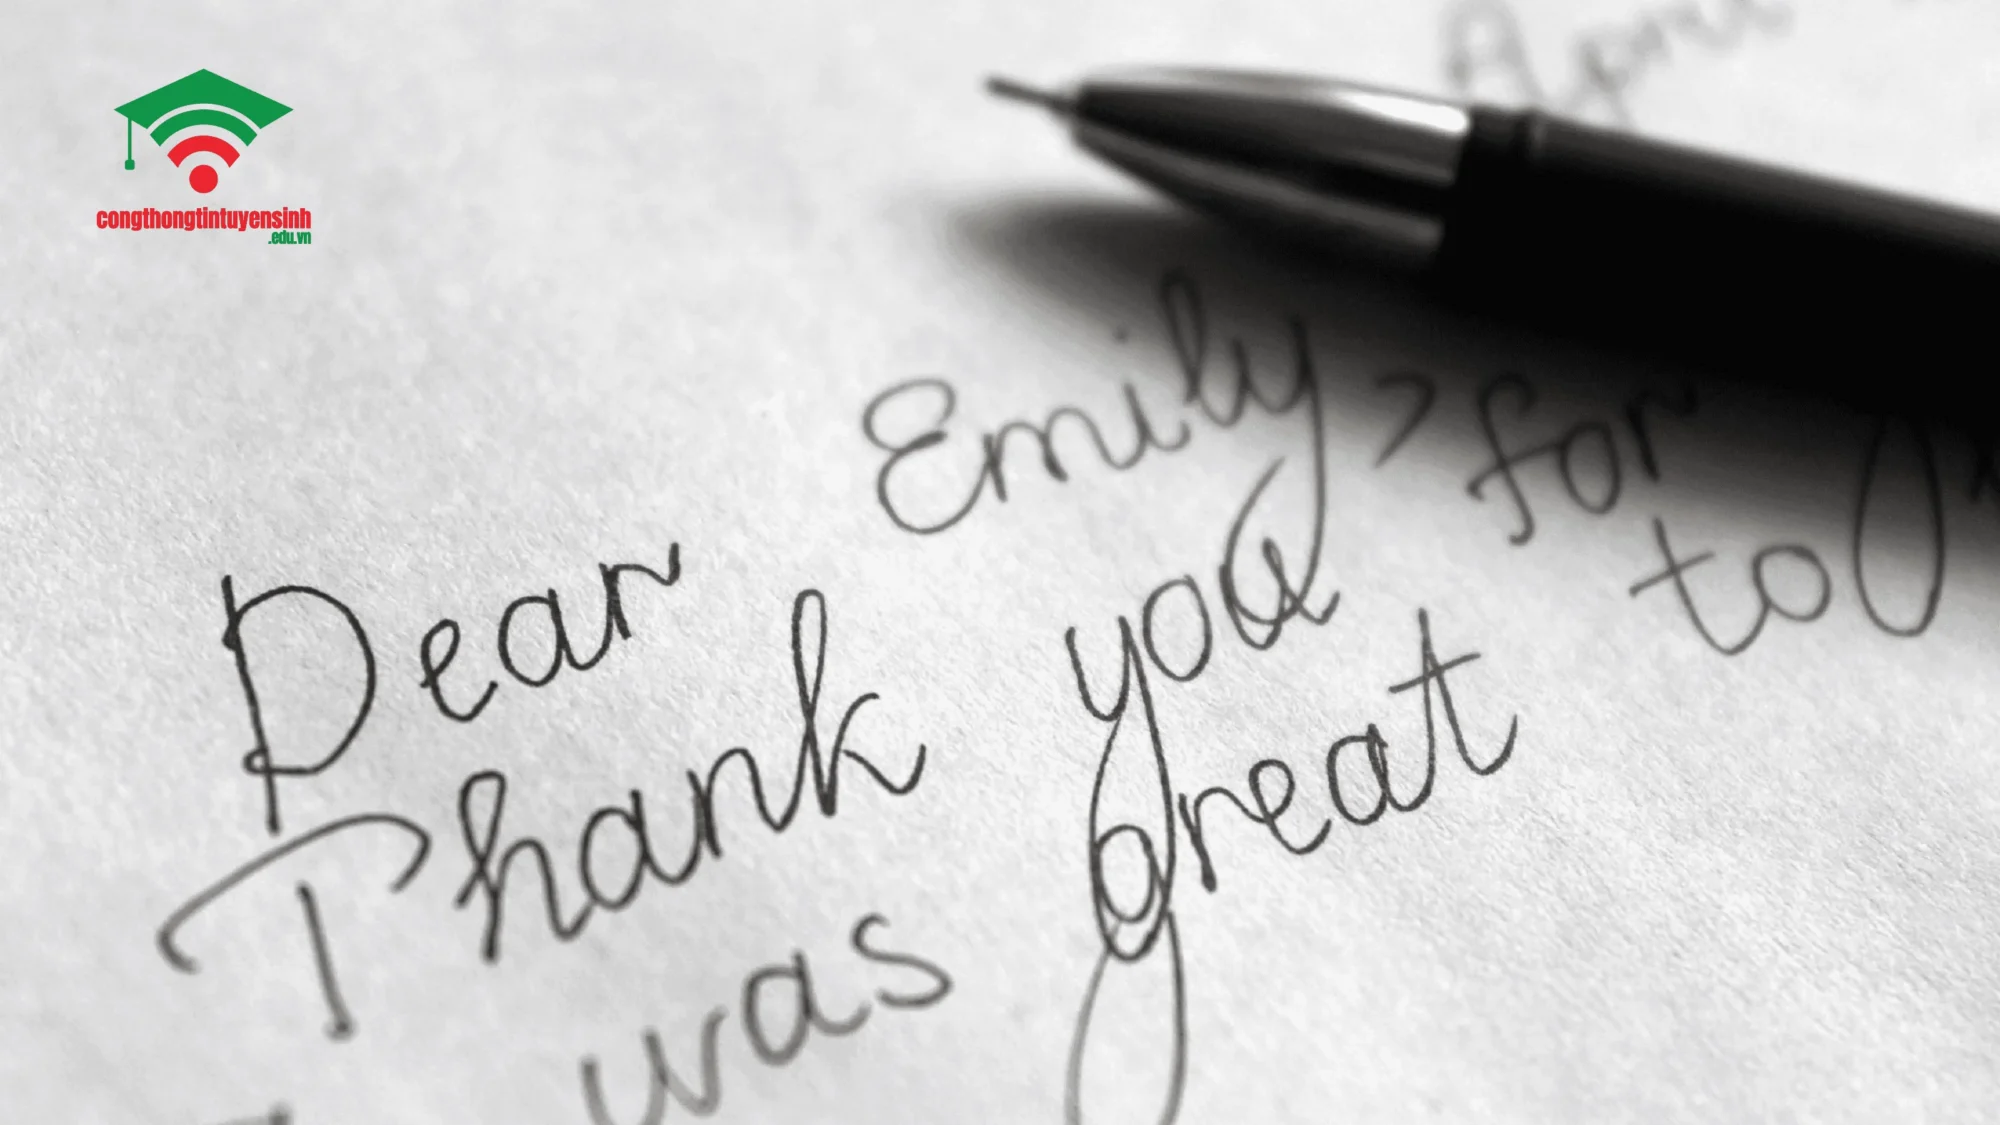 congthongtintuyensinh
.edu.vn
Dear Emily,
Thank you for
was great to